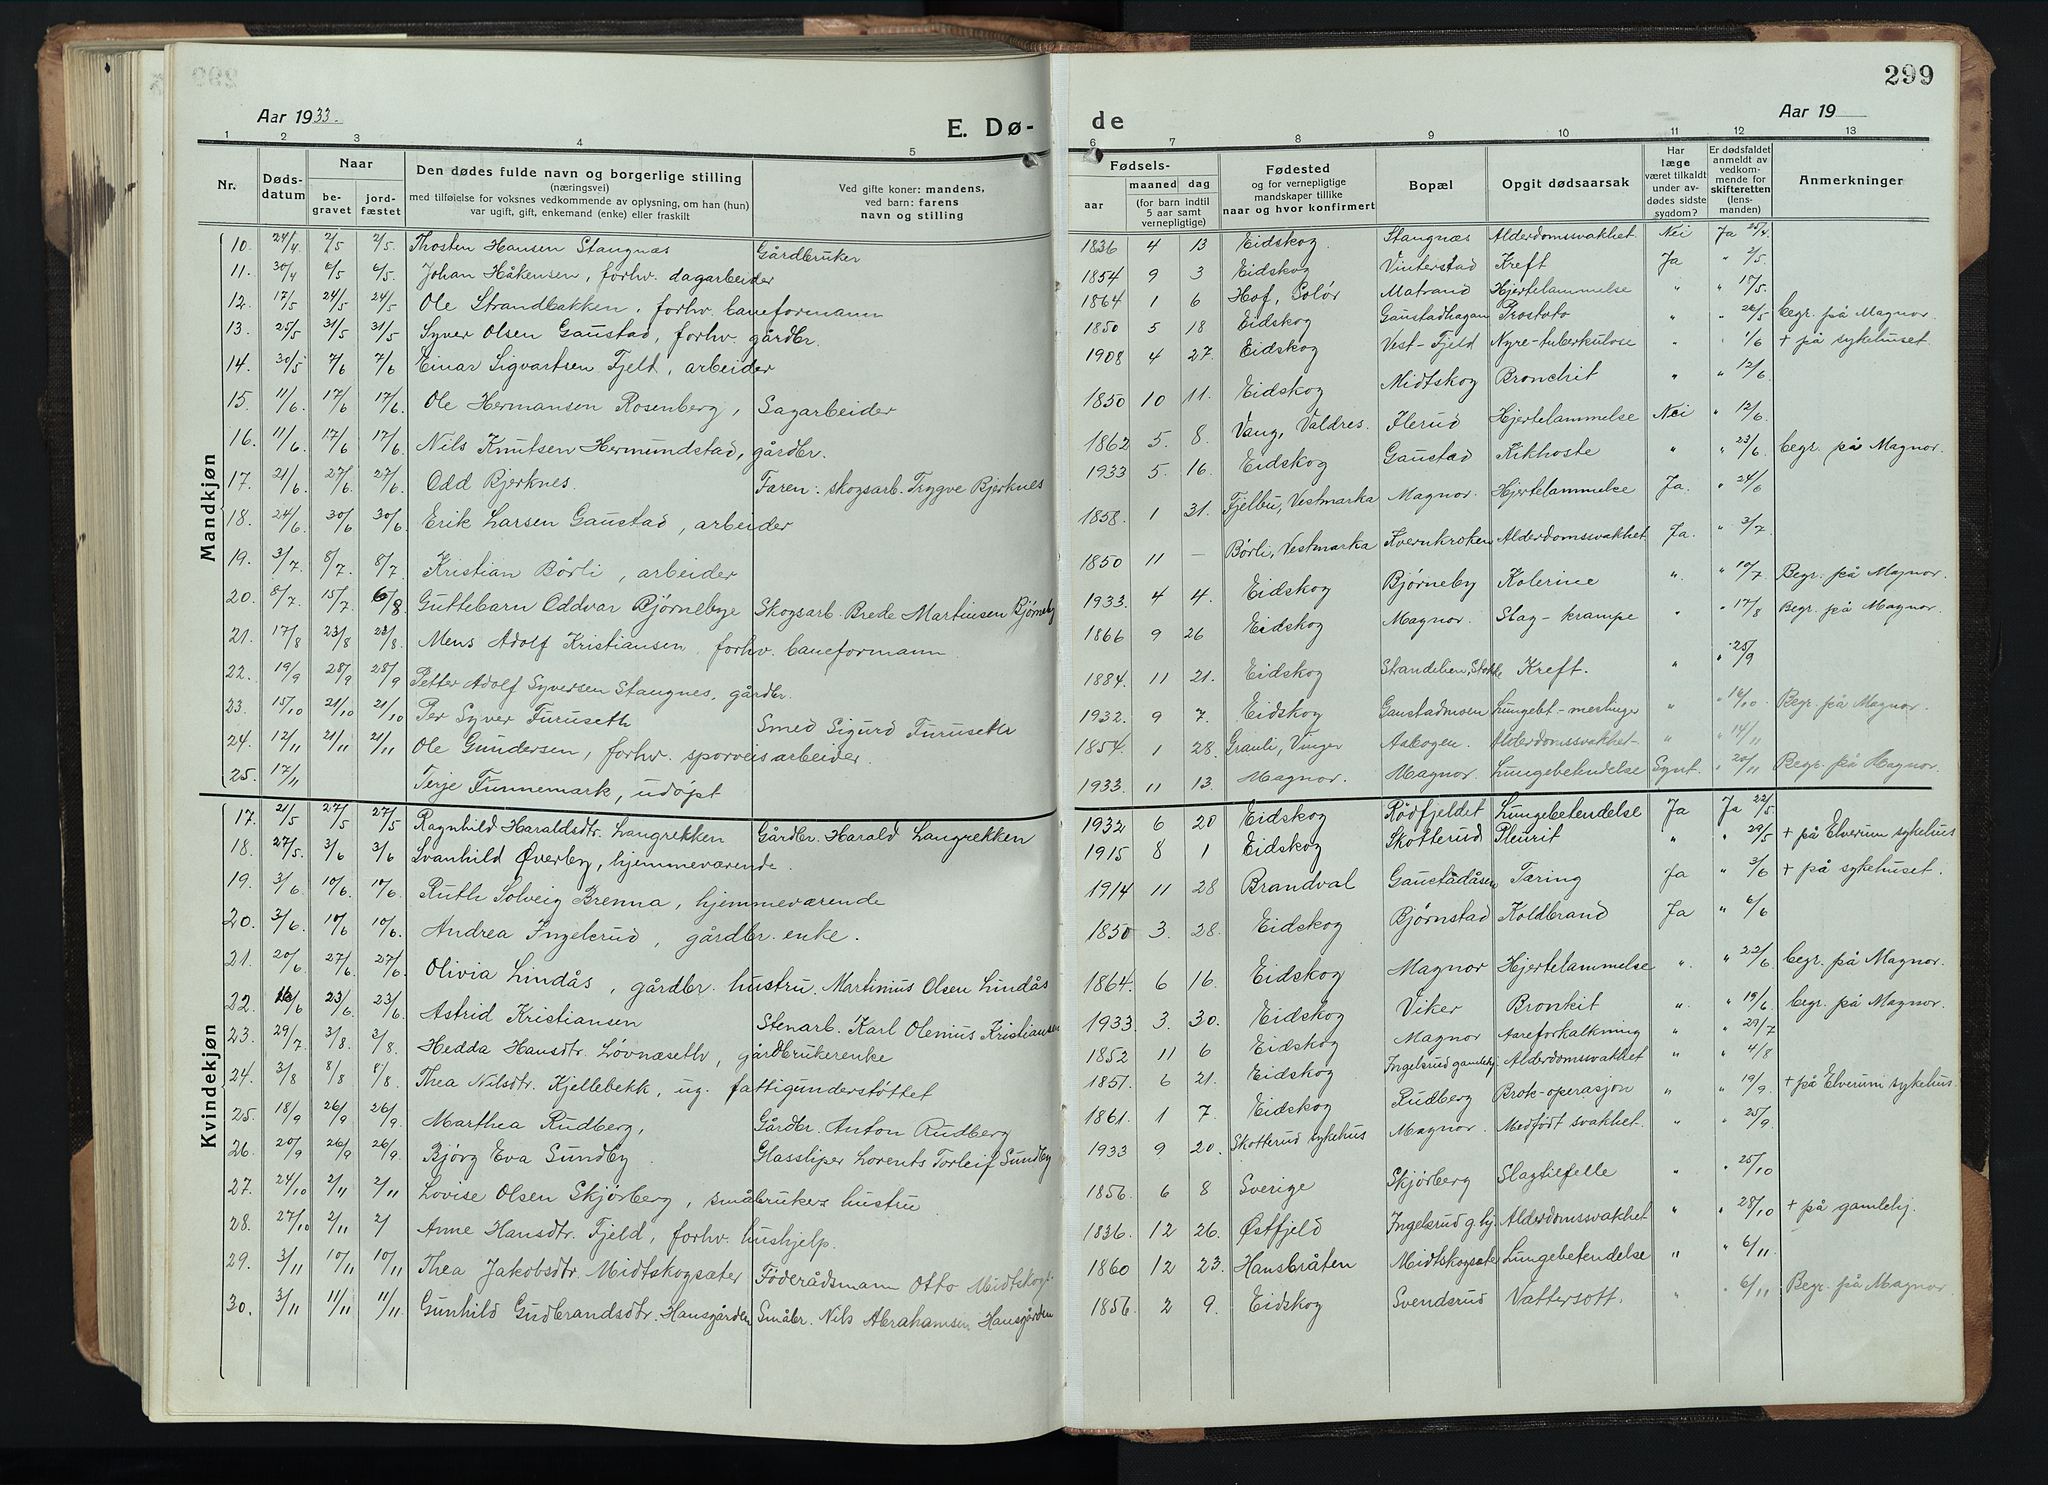 299
Aar 1933.
E. Dø-
de
Aar 19
1 2 3 4 5 6 7 8 9 10 11 12 13
Nr. Dødsdatum Naar begravet jordfæstet
Den dødes fulde navn og borgerlige stilling
(næringsvei)
med tilføielse for voksnes vedkommende av oplysning, om han (hun)
var ugift, gift, enkemand (enke) eller fraskilt
Ved gifte koner: mandens,
ved barn: farens
navn og stilling
Fødsels- aar maaned dag
(for barn indtil 5 aar samt vernepligtige)
Fødested
og for vernepligtige mandskaper tillike
naar og hvor konfirmert
Bopæl
Opgit dødsaarsak
Har læge været tilkaldt under avdødes sidste sygdom?
Er dødsfaldet anmeldt av vedkommende for skifteretten (lensmanden)
Anmerkninger
Mandkjøn
10. 24/4 2/5 2/5 Thosten Hansen Stangnæs Gårdbruker 1836 4 13 Eidskog. Stangnæs Alderdomssvakhet Nei Ja 25/4
11. 30/4 6/5 6/5 Johan Håkensen, forhv. dagarbeider 1854 9 3 Eidskog Vinterstad Kreft Ja " 2/5
12. 17/5 24/5 24/5 Ole Strandbakken, forhv. baneformann 1864 1 6 Hof, Solør Matrand Hjertelammelse " " 17/5
13. 25/5 31/5 31/5 Syver Olsen Gaustad, forhv. gårdbr. 1850 5 18 Eidskog Gaustadhagan Prostata " " 26/5 begr. på Magnor.
14. 30/5 7/6 7/6 Einar Sigvartsen Fjelt, arbeider 1908 4 27. Eidskog Vest-Fjeld Nyre-tuberkulose " " 1/6 + på sykehuset.
15. 11/6 17/6 17/6. Ole Hermansen Rosenberg, Sagarbeider 1850 10 11. Eidskog Midtskog Bronchit " " 12/6
16. 11/6 17/6 17/6 Nils Knutsen Hermundstad, gårdbr. 1862 5. 8. Vang, Valdres. Ilerud Hjertelammelse Nei " 12/6.
17. 21/6 27/6 27/6 Odd Bjerknes. Faren: skogsarb. Trygve Bjerknes 1933 5. 16. Eidskog Gaustad Kikhoste " " 23/6 begr. på Magnor.
18. 24/6 30/6 30/6 Erik Larsen Gaustad, arbeider 1858. 1 31. Fjelbu, Vestmarka Magnor. Hjertelammelse Ja. " 24/6
19. 3/7 8/7 8/7 Kristian Børli, arbeider 1850 11 — Børli, Vestmarka Kvernkroken Alderdomssvakhet Ja. " 3/7
20. 8/7 15/7 6/8 Guttebarn Oddvar Bjørnebye Skogsarb. Brede Martinsen Bjørneby 1933. 4 4. Eidskog Bjørneby Kolerine " " 10/7 Begr. på Magnor.
21. 17/8 23/8 23/8 Mens Adolf Kristiansen, forhv. baneformann. 1866 9 26 Eidskog Magnor. Slag-krampe " " 17/8 Begr. på Magnor.
22. 19/9 28/9 28/9 Petter Adolf Syversen Stangnes, gårdbr. 1884. 11 21. Eidskog Kreft. " " 25/9
23. 15/10 21/10 21/10 Per Syver Furuseth Smed Sigurd Furuseth 1932. 9 7. Eidskog Gaustadmoen Lungebet-meslinger " " 16/10 Begr. på Magnor.
24. 12/11 21/11 21/11 Ole Gundersen, forhv. sporveisarbeider. 1854. 1 28. Grauli, Vinger Aabogen. Alderdomssvakhet " " 14/11
25. 17/11 Terje Funnemark, udøpt 1933. 11 13. Magnor. Magnor. Lungebetendelse Synt. " 20/11 Begr. på Magnor.
Kvindekjøn
17. 21/5 27/5 27/5 Ragnhild Haraldsdtr. Langrekken Gårdbr. Harald Langrekken 1932 6 20 Eidskog Rödfjeldet Lungebetendelse Ja Ja 22/5
18. 27/5. 3/6 3/6 Svanhild Øverby, hjemmeværende. 1915 8 1 Eidskog Skotterud Pleurit " " 29/5 + på Elverum sykehus
19. 3/6 10/6. 10/6. Ruth Solveig Brenna, hjemmeværende 1914 11 28 Brandval Gaustadåsen Tæring Ja " 3/6 + på sykehuset.
20. 3/6. 10/6 10/6. Andrea Ingelsrud, gårdbr. enke. 1850 3. 28. Eidskog Bjørnstad Koldbrand Ja " 6/6
21. 20/6 27/6. 27/6 Olivia Lindås, gårdbr. hustru. Martinius Olsen Lindås 1864. 6 16. Eidskog Magnor Hjertelammelse ". " 22/6 begr. på Magnor.
22. 16/6 23/6. 23/6. Astrid Kristiansen Stenarb. Karl Olemus Kristiansen 1933. 3. 30. Eidskog Viker Bronkit ". " 19/6 begr. på Magnor.
23. 29/7 3/8 3/8. Hedda Hansdtr. Løvnæseth, gårdbrukerenke 1852 11 6 Eidskog Magnor Aareforkalkning " " 29/7
24. 3/8 8/8 8/8. Thea Nilsdtr. Kjellebekk, ug. fattigunderstøttet 1851. 6 21. Eidskog Ingelsrud gamlehj. Alderdomssvakhet " " 4/8
25. 18/9 26/9 26/9 Marthea Rudberg, Gårdbr. Anton Rudberg 1861. 1 7. Eidskog Rudberg Brok-operasjon " " 19/9. + på Elverum sykehus.
26. 20/9 26/9 26/9 Bjørg Eva Sundby Glassliper Lorents Torleif Sundby 1933 9 20. Skotterud sykehus Magnor. Medfødt svakhet. " " 25/9
27. 24/10 2/11 2/11 Lovise Olsen Skjørberg, småbrukers hustru 1856. 6 8 Sverige Skjørberg Slagtilfelle " " 25/10
28. 27/10 2/11 2/ Anne Hansdtr. Fjeld, forhv. hushjelp. 1836. 12 26. Østfjeld Ingelsrud g.hj. Alderdomssvakhet " " 28/10 + på gamlehj.
29. 3/11 10/11 10/11 Thea Jakobsdtr. Midtskogsæter Föderådsmann Otto Midtskogs. 1860 12 23. Hansbråten Midtskogsæter Lungebetendelse " " 6/11
30. 3/11 11/11 11/11 Gunhild Gudbrandsdtr. Hansgården Småbr. Nils Abrahamsen Hansgården 1856. 2 9. Eidskog Svendsrud Vattersott. " " 6/11 Begr. på Magnor